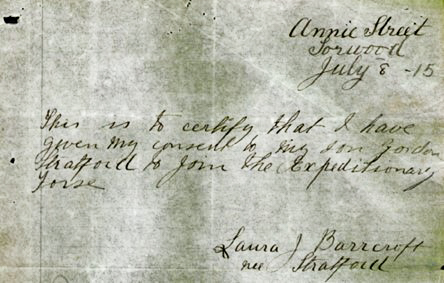 Annie Street
Torwood
July 8 -15
This is to certify that I have
given my consent to my son Gordon
Stratford to join the Expeditionary
Forse
Laura J Barrcroft
nee Stratford